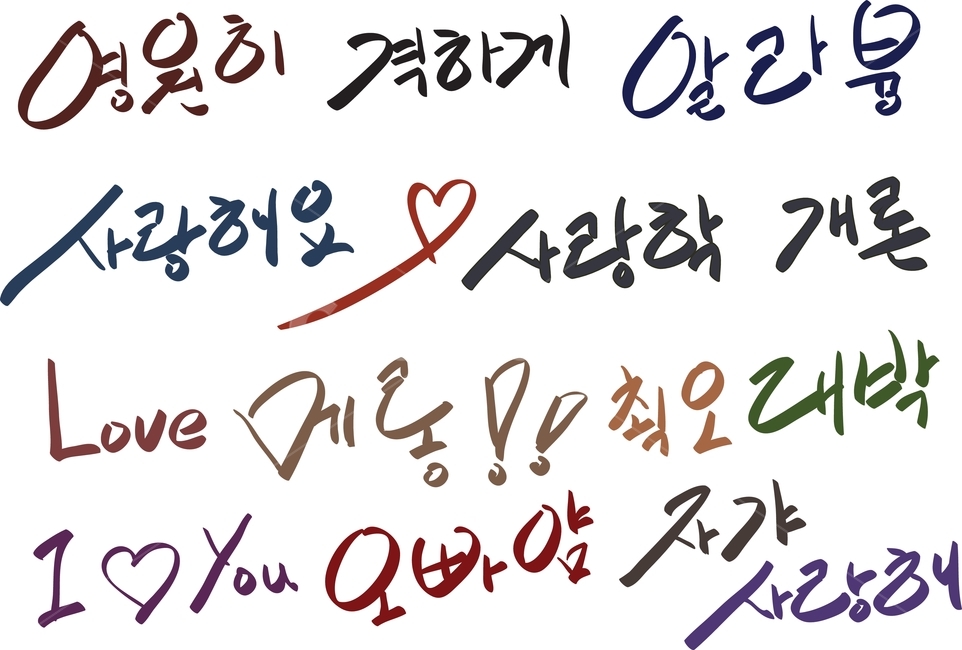 영원히 격하게 알라븁
사랑해요 사랑학 개론
Love 메롱!! 칰오 대박
I ♡ You 오빠얌 자갸
사랑해